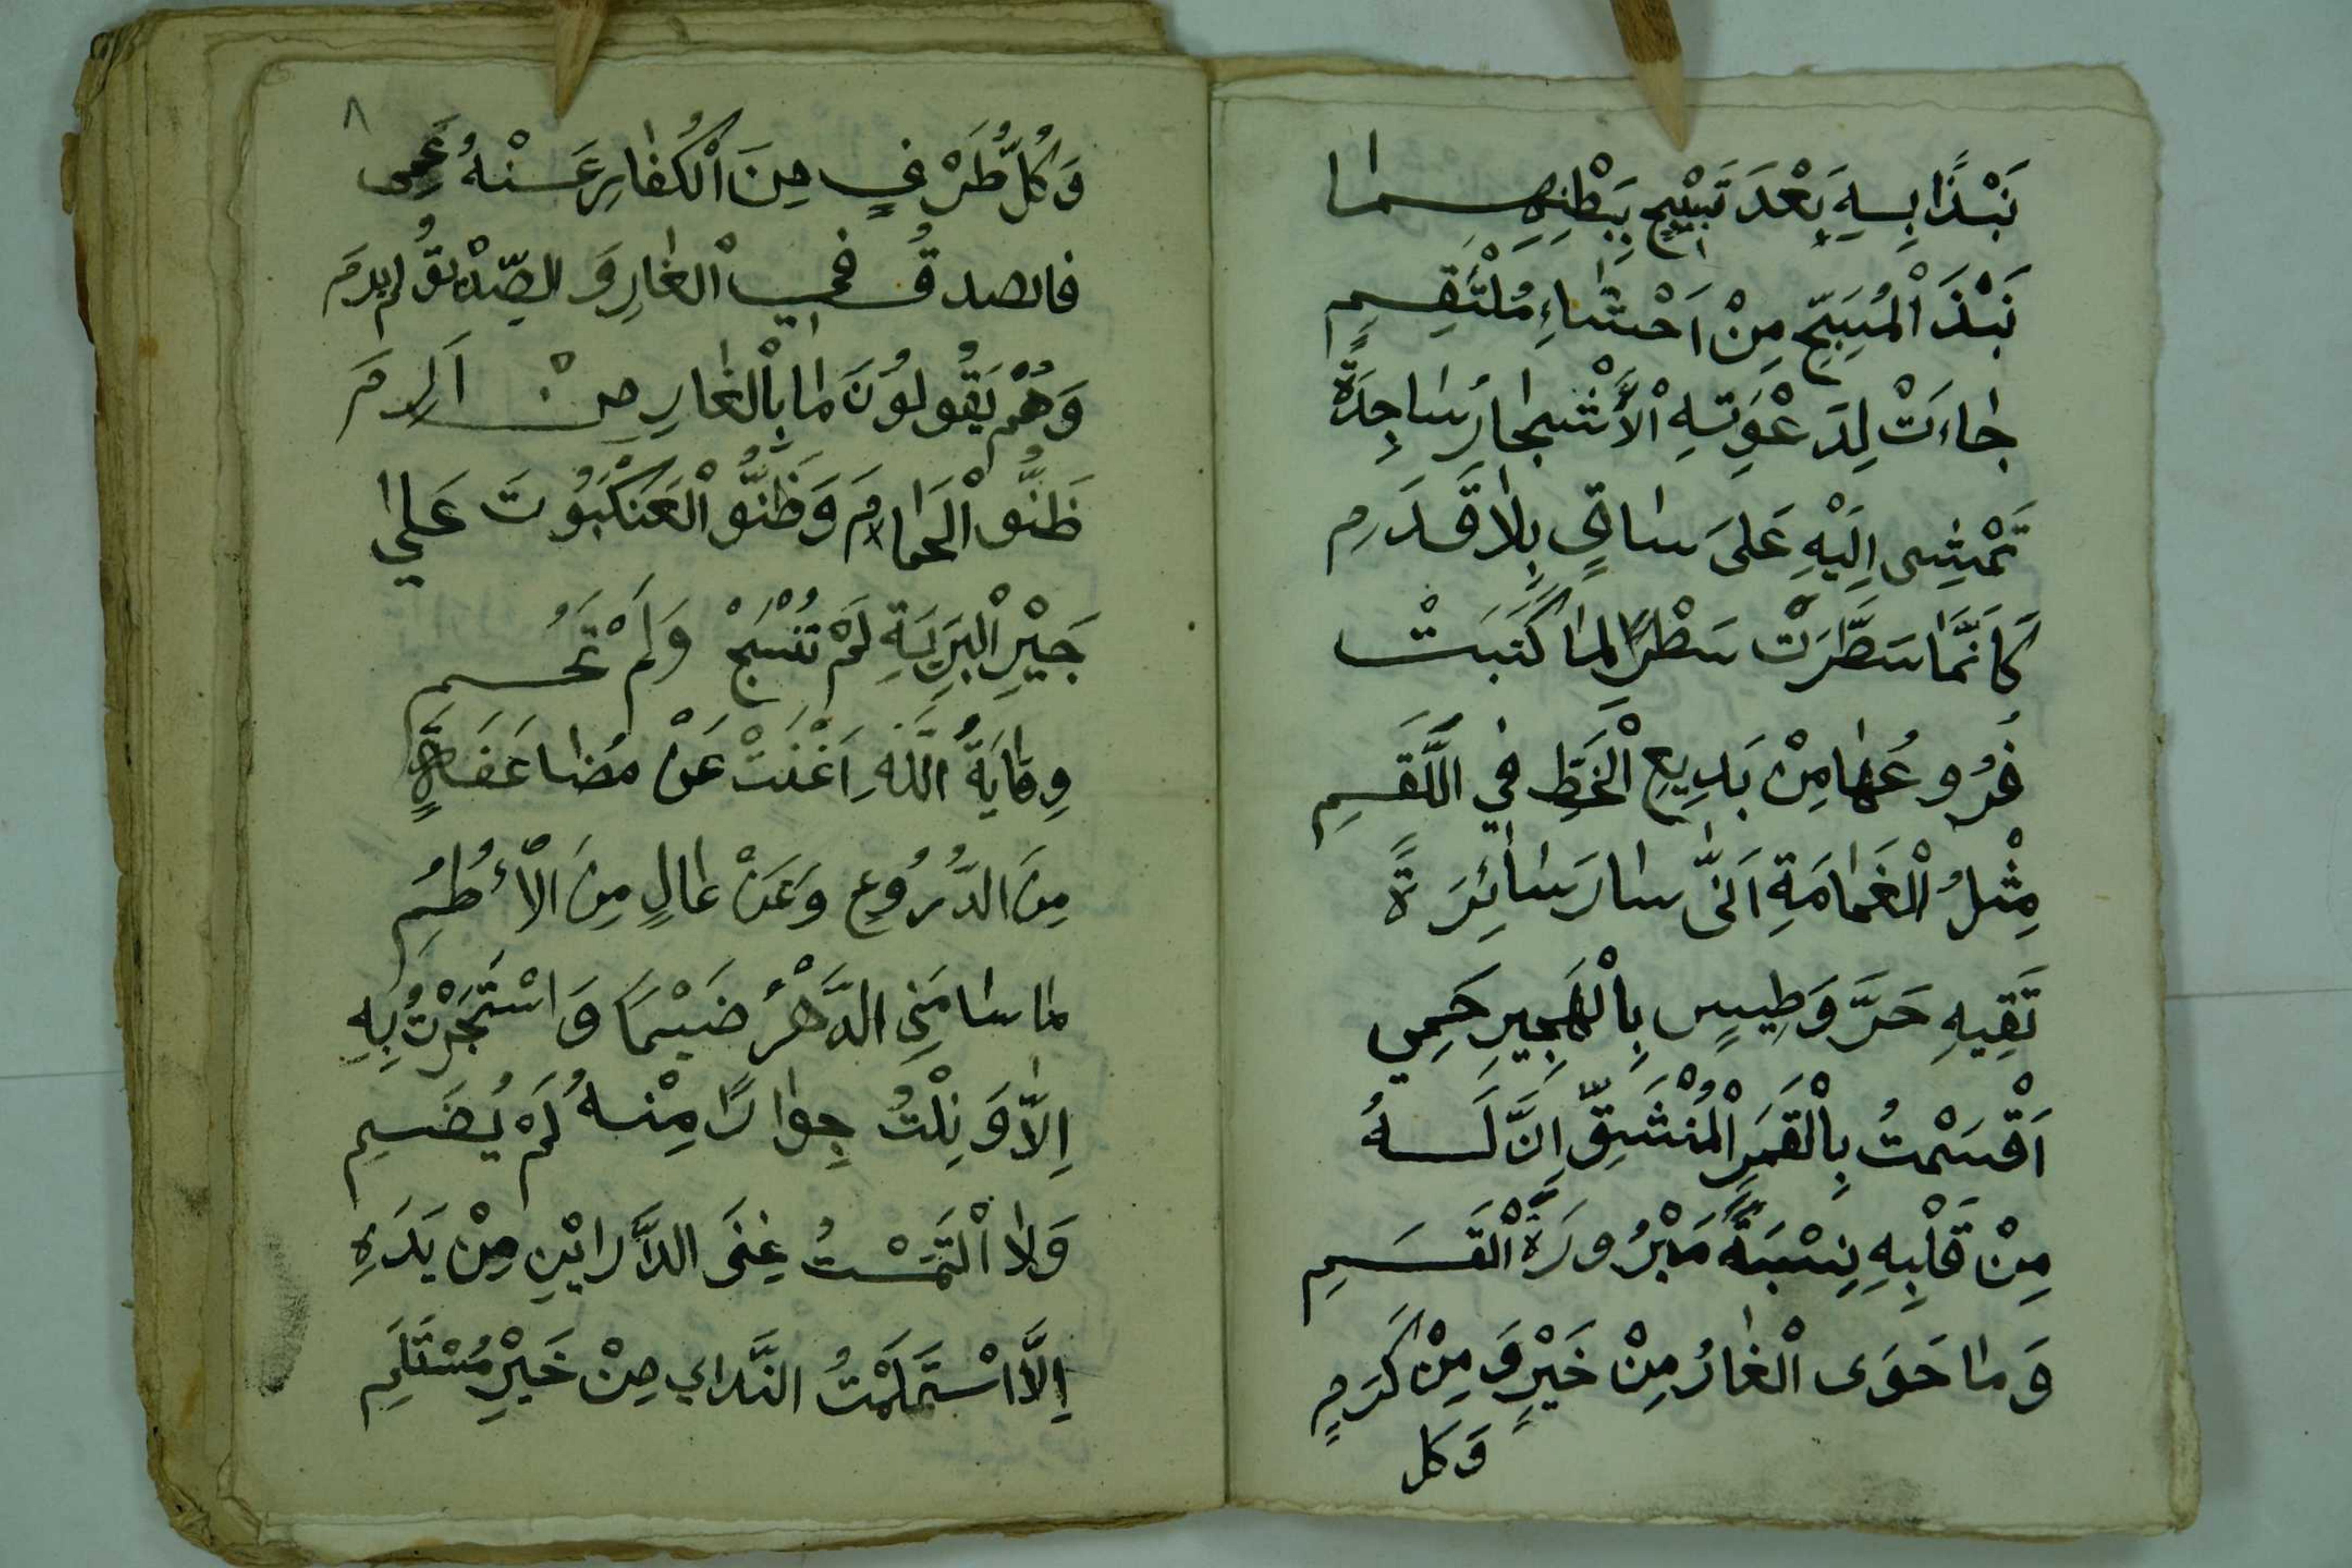 نَبْذًا بِهِ بَعْدَ تَسْبِيحٍ بِبَطْنِهِمَا
نَبْذَ الْمُسَبِّحِ مِنْ اَحْشَاءِ مُلْتَقِمٍ
جَاءَتْ لِدَعْوَتِهِ الْاَشْجَارُ سَاجِدَةً
تَمْشِى اِلَيْهِ عَلَى سَاقٍ بِلَا قَدَمِ
كَاَنَّمَا سَطَّرَتْ سَطْرًا لِمَا كَتَبَتْ
فُرُوعُهَا مِنْ بَدِيعِ الْخَطِّ فِي اللَّقَمِ
مِثْلُ الْغَمَامَةِ اَنّٰى سَارَ سَائِرَةً
تَقِيهِ حَرَّ وَطِيسٍ بِالْهَجِيرِ حَمِي
اَقْسَمْتُ بِالْقَمَرِ الْمُنْشَقِّ اِنَّ لَهُ
مِنْ قَلْبِهِ نِسْبَةً مَبْرُورَةَ الْقَسَمِ
وَمَا حَوَى الْغَارُ مِنْ خَيْرٍ وَ مِنْ كَرَمٍ
وَكل
٨
وَكُلُّ طَرْفٍ مِنَ الْكُفَّارِ عَنْهُ عَمِى
فالصدقُ فِي الْغَارِ وَ الصِّدِّيقُ لم يرمَ
وَهُمْ يَقُولُونَ مَا بِالْغَارِ مِنْ اَرِمَ
ظَنُّوا الْحَمَامَ وَظَنُّوا الْعَنْكَبُوتَ عَلى
خَيْرِ الْبَرِيَةِ لَمْ تَنْسُجْ وَلَمْ تَحُمِ
وِقَايَةُ اللَّهِ اَغْنَتْ عَنْ مُضَاعَفَةٍ
مِنَ الدُّرُوعِ وَعَنْ عَالٍ مِنَ الْأُطُمِ
مَا سَامَنِي الدَّهْرُ ضَيْمًا وَ اسْتَجَرْتُ بِهِ
اِلَّا وَ نِلْتُ جِوَارًا مِنْهُ لَمْ يُضَمِ
وَلَا الْتَمَسْتُ غِنَى الدَّارَيْنِ مِنْ يَدَهِ
اِلَّا اسْتَلَمْتُ النَّدَاي مِنْ خَيْرِ مُسْتَلَمِ